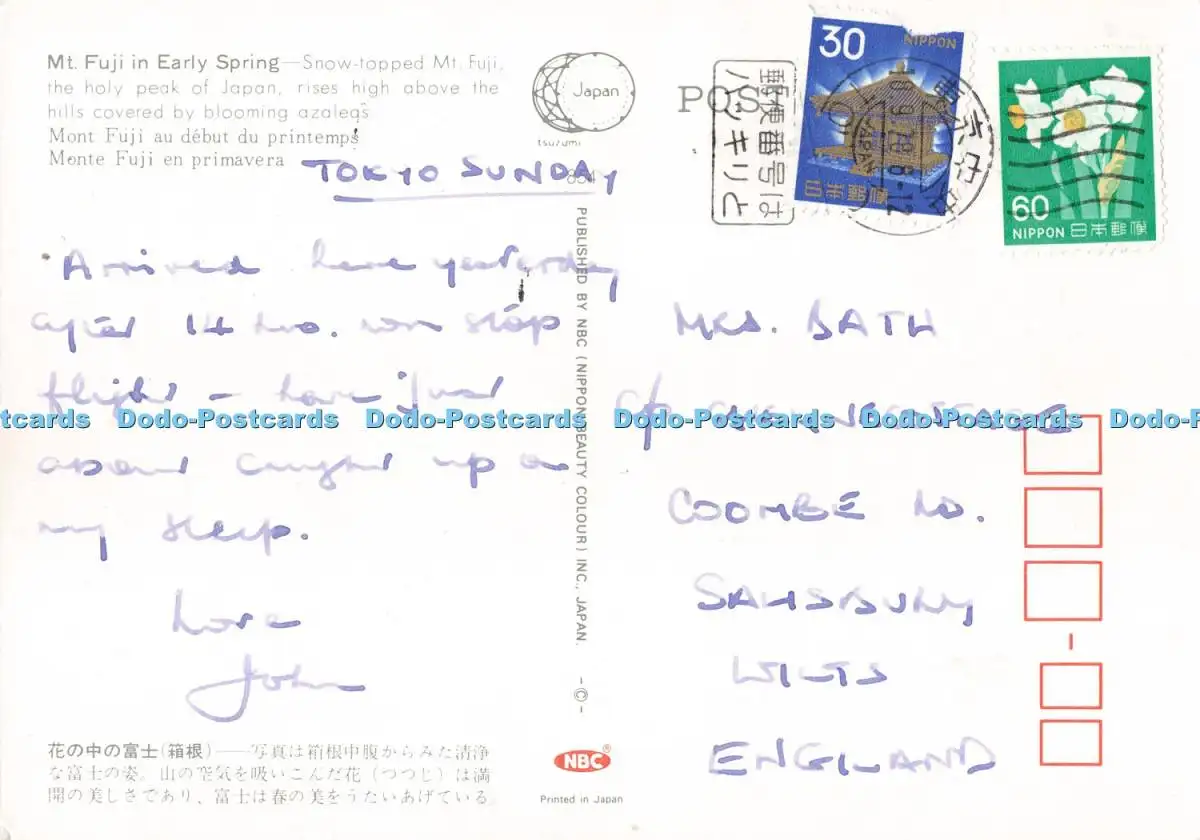 Mt. Fuji in Early Spring—Snow-topped Mt. Fuji,
the holy peak of Japan, rises high above the
hills covered by blooming azaleas
Mont Fuji au début du printemps
Monte Fuji en primavera
Japan
tsuzumi
TOKYO SUNDAY
Arrived here yesterday
after 14 hrs. non stop
flight – have just
about caught up on
my sleep.
Love
John
花の中の富士(箱根)——写真は箱根中腹からみた清浄
な富士の姿。山の空気を吸いこんだ花(つつじ)は満
開の美しさであり、富士は春の美をうたいあげている
PUBLISHED BY NBC (NIPPON BEAUTY COLOUR) INC., JAPAN. -©-
NBC®
Printed in Japan
POST
郵便番号は
ハッキリと
30
NIPPON
日本郵便
JAPAN
60
NIPPON 日本郵便
MRS. BATH
c/o
COOMBE RD.
SALISBURY
WILTS
ENGLAND
Dodo-Postcards Dodo-Postcards Dodo-Postcards Dodo-Postcards Dodo-Postcards